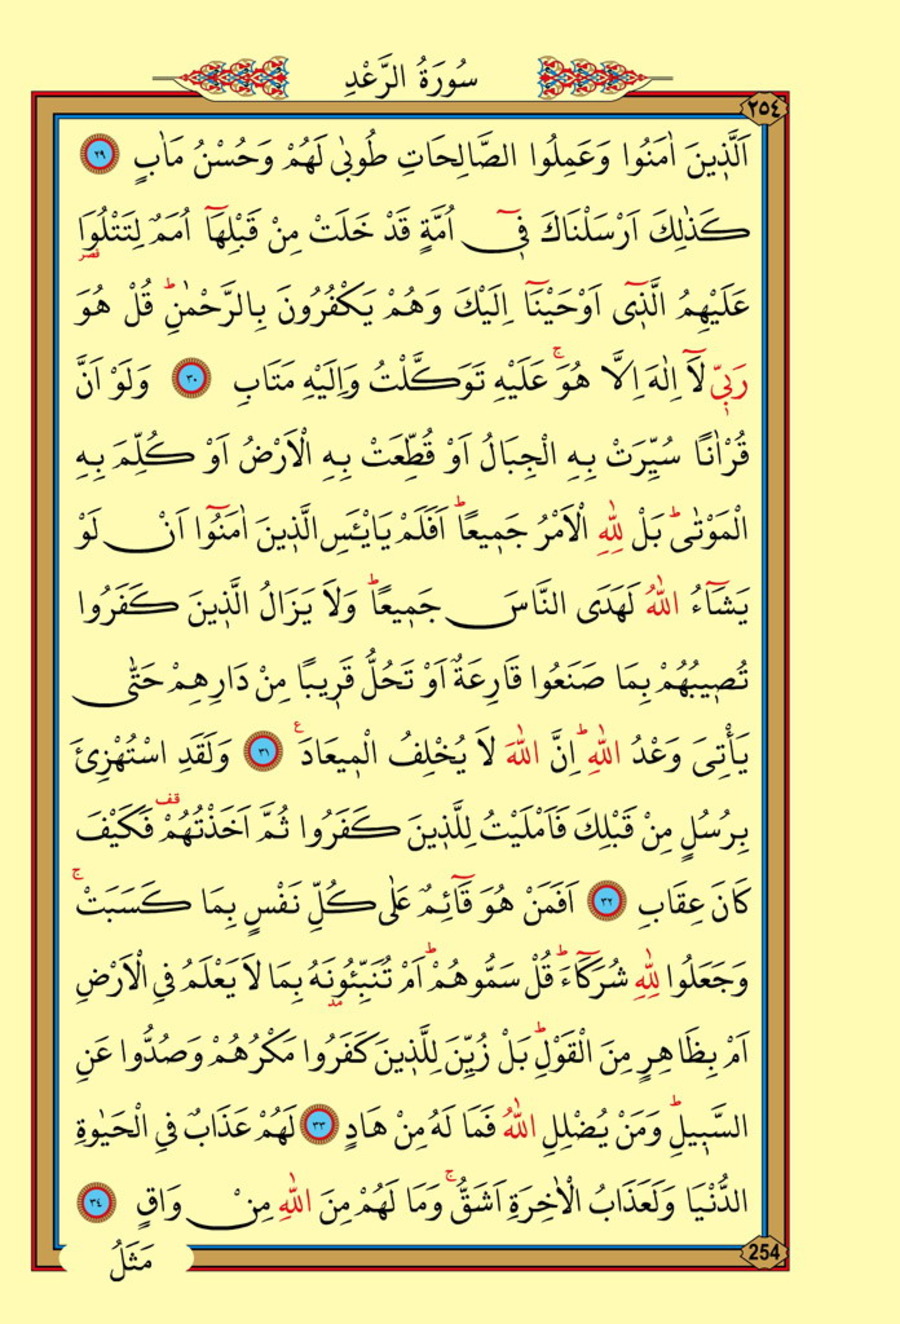 سُورَةُ الرَّعْدِ
٢٥٤
اَلَّذ۪ينَ اٰمَنُوا وَعَمِلُوا الصَّالِحَاتِ طُوبٰى لَهُمْ وَحُسْنُ مَاٰبٍ ٢٩
كَذٰلِكَ اَرْسَلْنَاكَ ف۪ٓي اُمَّةٍ قَدْ خَلَتْ مِنْ قَبْلِهَٓا اُمَمٌ لِتَتْلُوَ۬ا
قصر
عَلَيْهِمُ الَّذ۪ٓي اَوْحَيْنَٓا اِلَيْكَ وَهُمْ يَكْفُرُونَ بِالرَّحْمٰنِۜ قُلْ هُوَ
رَبّ۪ي لَٓا اِلٰهَ اِلَّا هُوَۚ عَلَيْهِ تَوَكَّلْتُ وَاِلَيْهِ مَتَابِ ٣٠ وَلَوْ اَنَّ
قُرْاٰنًا سُيِّرَتْ بِهِ الْجِبَالُ اَوْ قُطِّعَتْ بِهِ الْاَرْضُ اَوْ كُلِّمَ بِهِ
الْمَوْتٰىۜ بَلْ لِلّٰهِ الْاَمْرُ جَم۪يعًاۜ اَفَلَمْ يَايْـَٔسِ الَّذ۪ينَ اٰمَنُٓوا اَنْ لَوْ
يَشَٓاءُ اللّٰهُ لَهَدَى النَّاسَ جَم۪يعًاۜ وَلَا يَزَالُ الَّذ۪ينَ كَفَرُوا
تُص۪يبُهُمْ بِمَا صَنَعُوا قَارِعَةٌ اَوْ تَحُلُّ قَر۪يبًا مِنْ دَارِهِمْ حَتّٰى
يَأْتِيَ وَعْدُ اللّٰهِۜ اِنَّ اللّٰهَ لَا يُخْلِفُ الْم۪يعَادَ۟ ٣١ وَلَقَدِ اسْتُهْزِئَ
بِرُسُلٍ مِنْ قَبْلِكَ فَاَمْلَيْتُ لِلَّذ۪ينَ كَفَرُوا ثُمَّ اَخَذْتُهُمْ قف فَكَيْفَ
كَانَ عِقَابِ ٣٢ اَفَمَنْ هُوَ قَٓائِمٌ عَلٰى كُلِّ نَفْسٍ بِمَا كَسَبَتْۚ
وَجَعَلُوا لِلّٰهِ شُرَكَٓاءَۜ قُلْ سَمُّوهُمْۜ اَمْ تُنَبِّؤُ۫نَهُ بِمَا لَا يَعْلَمُ فِي الْاَرْضِ
اَمْ بِظَاهِرٍ مِنَ الْقَوْلِۜ بَلْ زُيِّنَ لِلَّذ۪ينَ كَفَرُوا مَكْرُهُمْ وَصُدُّوا عَنِ
السَّب۪يلِۜ وَمَنْ يُضْلِلِ اللّٰهُ فَمَا لَهُ مِنْ هَادٍ ٣٣ لَهُمْ عَذَابٌ فِي الْحَيٰوةِ
الدُّنْيَا وَلَعَذَابُ الْاٰخِرَةِ اَشَقُّۚ وَمَا لَهُمْ مِنَ اللّٰهِ مِنْ وَاقٍ ٣٤
254
مَثَلُ